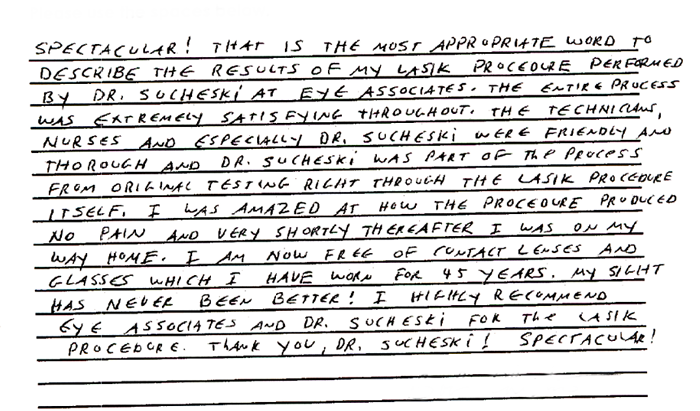 SPECTACULAR! THAT IS THE MOST APPROPRIATE WORD TO
DESCRIBE THE RESULTS OF MY LASIK PROCEDURE PERFORMED
BY DR. SUCHESKi AT EYE ASSOCIATES. THE ENTIRE PROCESS
WAS EXTREMELY SATISFYING THROUGHOUT. THE TECHNICIANS,
NURSES AND ESPECIALLY DR. SUCHESKi WERE FRIENDLY AND
THOROUGH AND DR. SUCHESKi WAS PART OF The PROCESS
FROM ORIGINAL TESTING RIGHT THROUGH THE LASIK PROCEDURE
ITSELF. I WAS AMAZED AT HOW THE PROCEDURE PRODUCED
NO PAIN AND VERY SHORTLY THEREAFTER I WAS ON MY
WAY HOME. I AM NOW FREE OF CONTACT LENSES AND
GLASSES WHICH I HAVE WORN FOR 45 YEARS. MY SIGHT
HAS NEVER BEEN BETTER! I HIGHLY RECOMMEND
EYE ASSOCIATES AND DR. SUCHESKi FOR The LASIK
PROCEDURE. ThANK YOU, DR. SUCHESKi! SPECTACULAR!